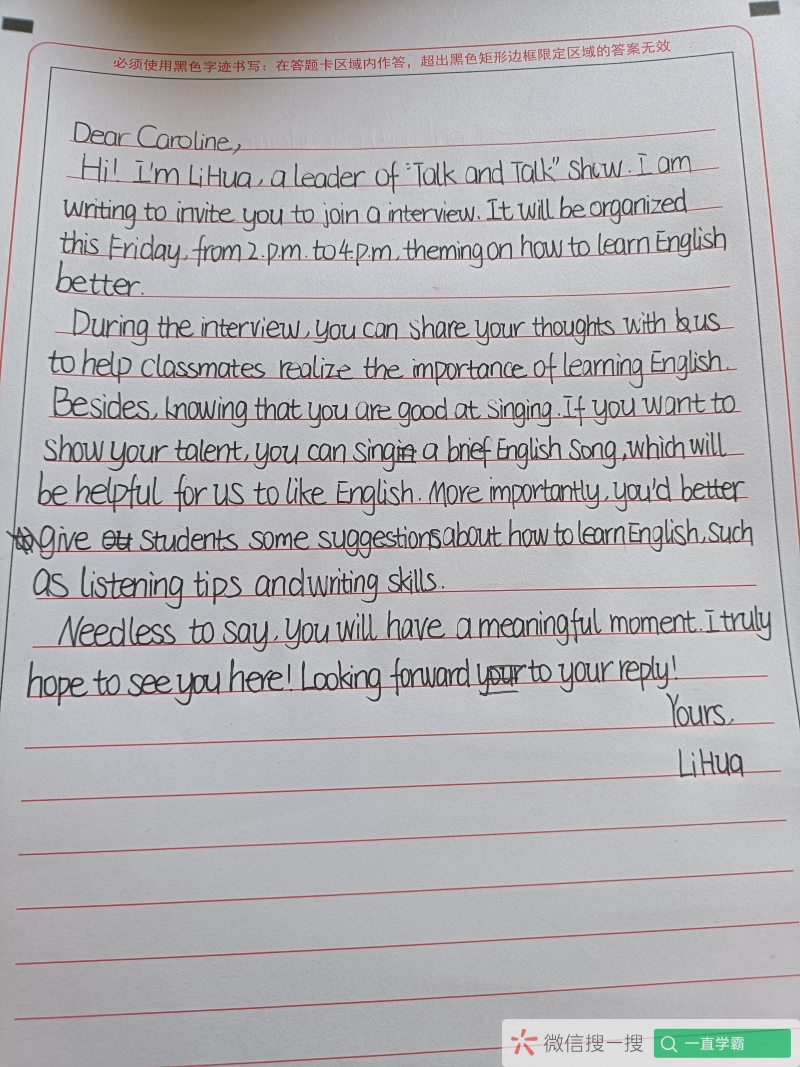 必须使用黑色字迹书写：在答题卡区域内作答，超出黑色矩形边框限定区域的答案无效
Dear Caroline,
Hi! I'm LiHua, a leader of "Talk and Talk" Show. I am
writing to invite you to join a interview. It will be organized
this Friday, from 2.p.m. to 4.p.m, theming on how to learn English
better.
During the interview, you can share your thoughts with us
to help classmates realize the importance of learning English.
Besides, knowing that you are good at singing. If you want to
show your talent, you can sing a brief English song, which will
be helpful for us to like English. More importantly, you'd better
give students some suggestions about how to learn English, such
as listening tips and writing skills.
Needless to say, you will have a meaningful moment. I truly
hope to see you here! Looking forward to your reply!
Yours,
LiHua
微信搜一搜 一直学霸